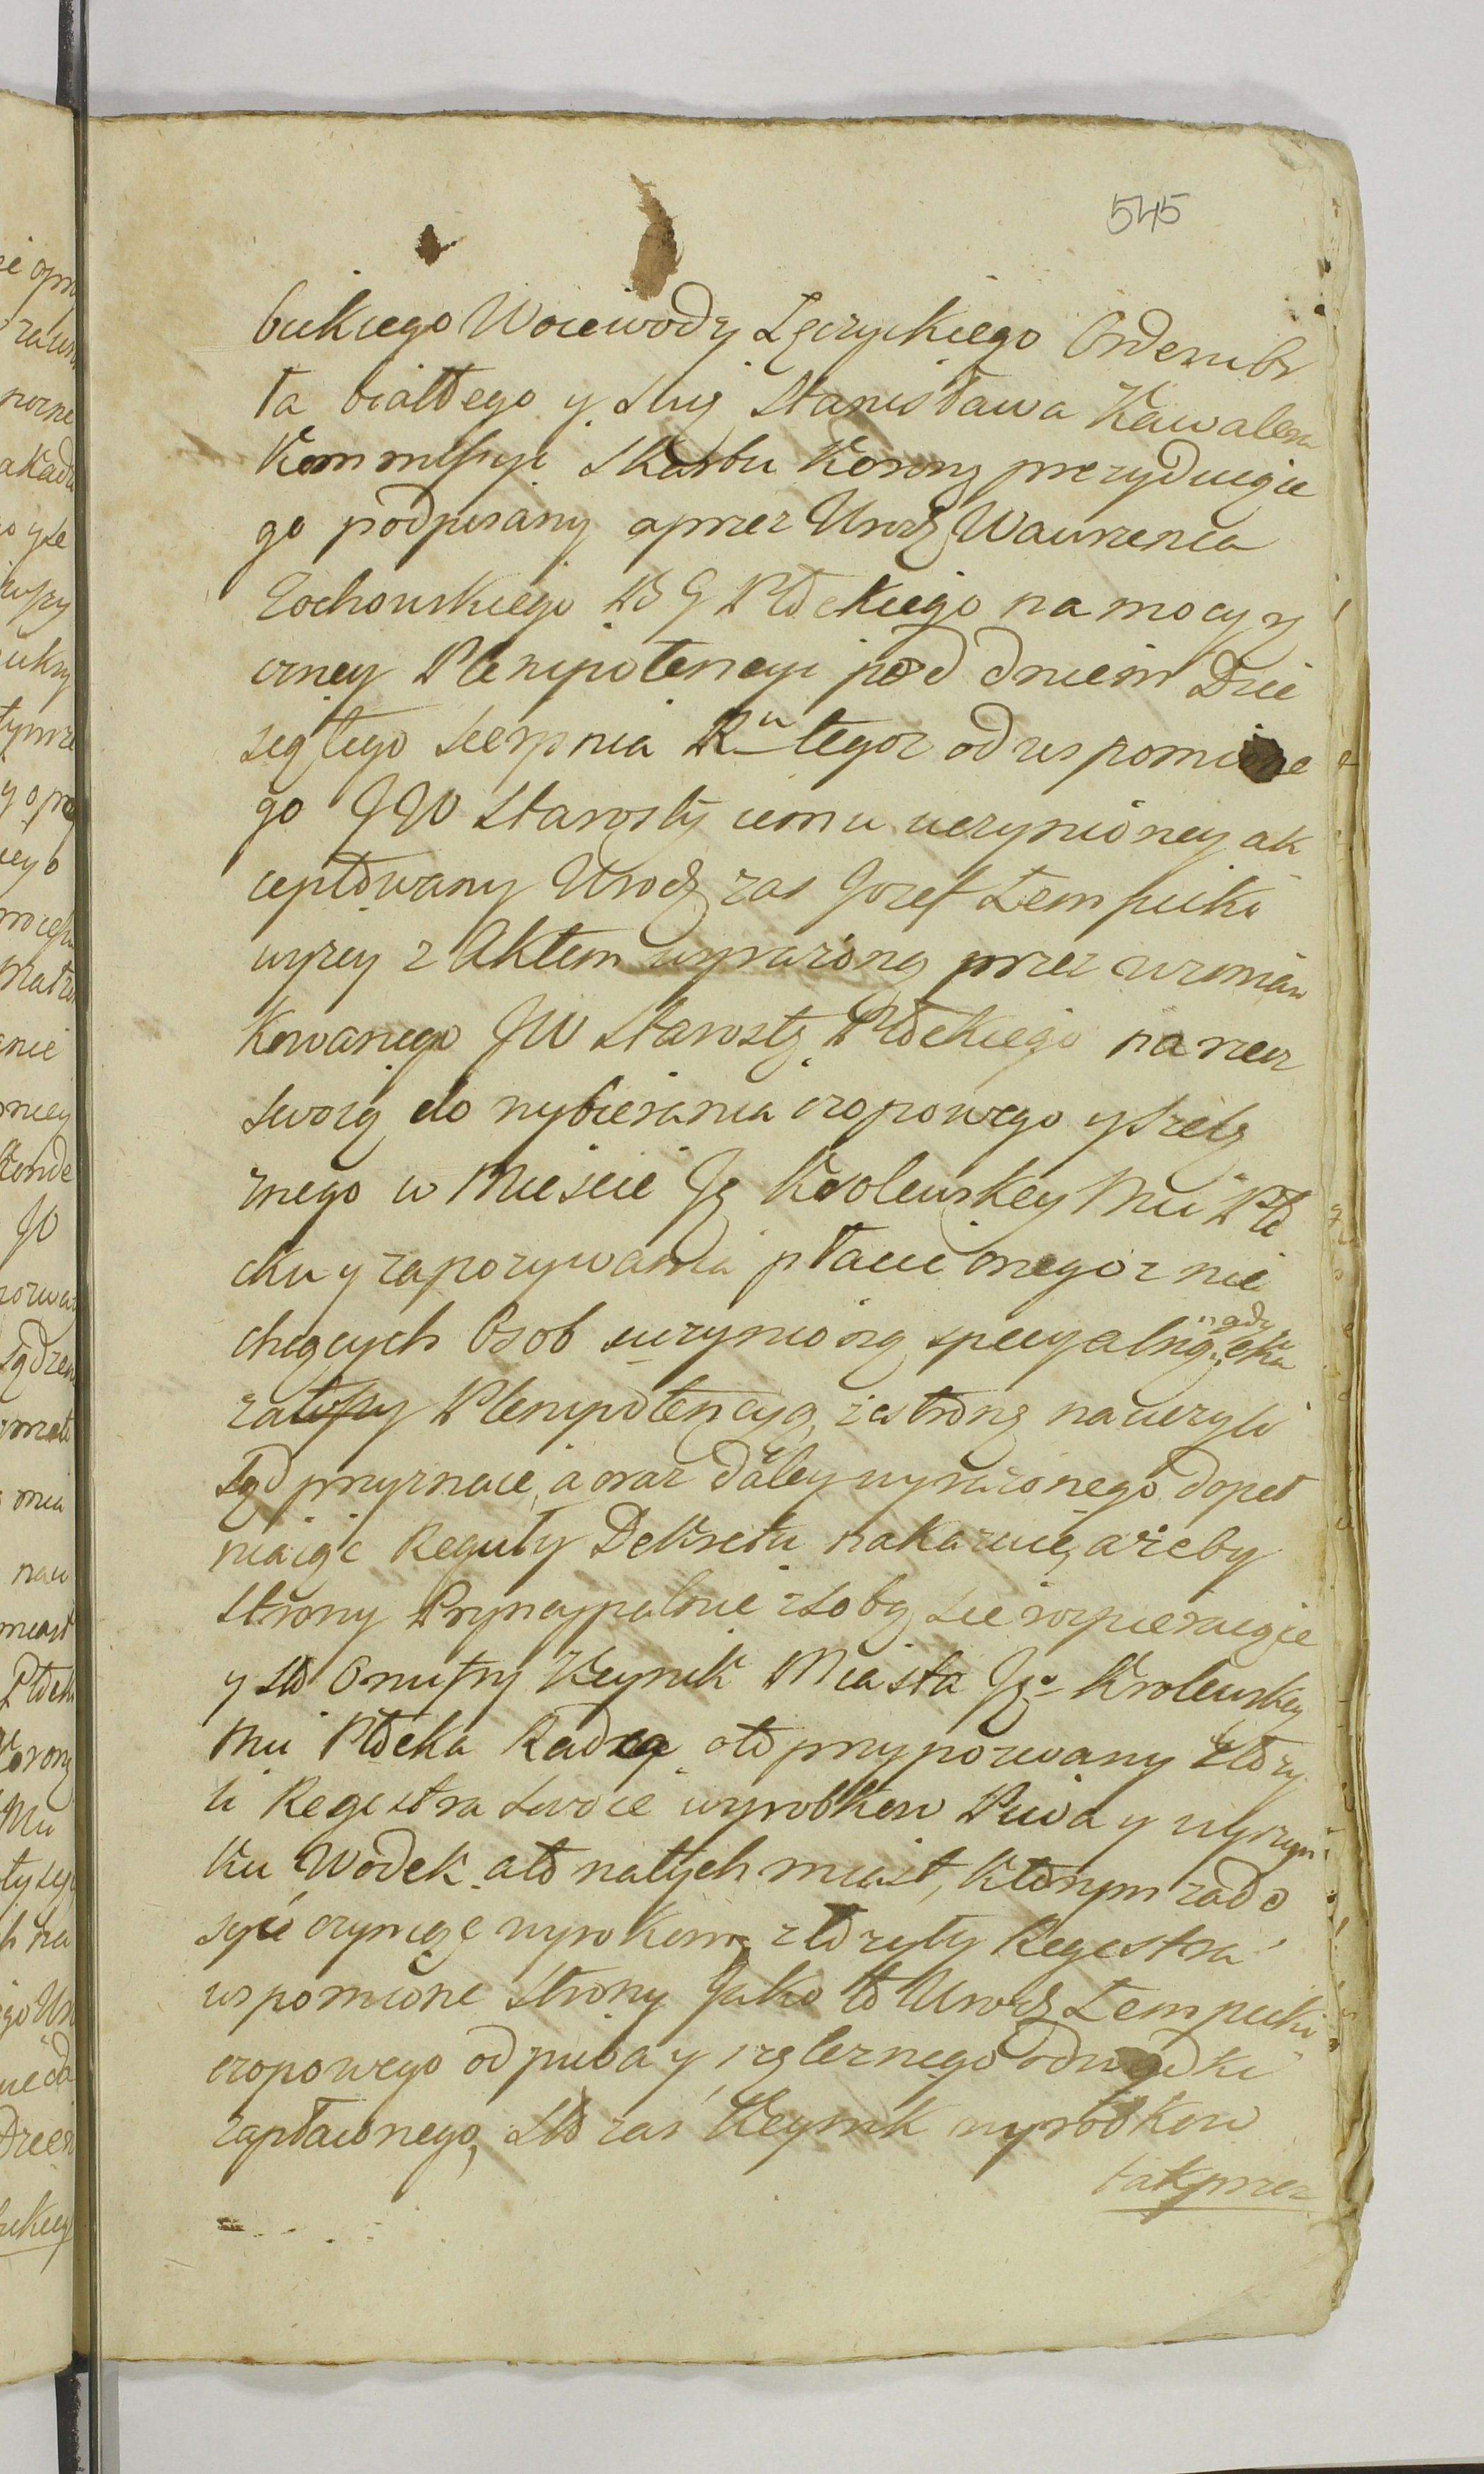 545
bukiego Woiewody Łęczyckiego Orderu Or
ła białłego y Stug Stanisława Kawalera
Kommissyi Skarbu Koronz prezyduiące
go podpisany aprzez Urodz Wawrzenca
Zochowskiego B G Płockiego na mocy y
czney Plenipotencyi pod dniem Dzie
siątego sierpnia Ru tegoz od wspomione
go JW Starosty iemu uczynioney ak
ceptowany Urodz zas Jozef Łempicki
wyzey z Aktem wyrazoną przez wzmian
kowanego JW Starostę Płockiego na rzecz
swoią do wybierania czopowego y szelę
znego w Miescie Ję Krolewskey Mci Pło
cku y zapozywania płacic onegoz nie
chcących Osob uczynioną specyalną
zaszłą Plenipotencyą, ze stroną na uczyli
Sąd przyznaie, a oraz daley wyrazonego dopeł
niaiąc Reguły Dekretu nakazuie, azeby
Strony Pryncypalnie z sobą sie rozpieraiące
y Sło Onufry Keynik Miasta Jgo Krolewskey
Mci Płocka Radca oto przypozwany złozy
li Regestra swoie wyrobkow Piwa y wyszyn
ku Wodek ato natychmiast, Ktorym zado
syć czyniąc wyrokom, złozyły Regestra
wspomione Strony Jako to Urodz Łempicki
czopowego od piwa y szęlęznego od wodki
zapłaconego, Sło zas Keynik wyrobkow
tak przez